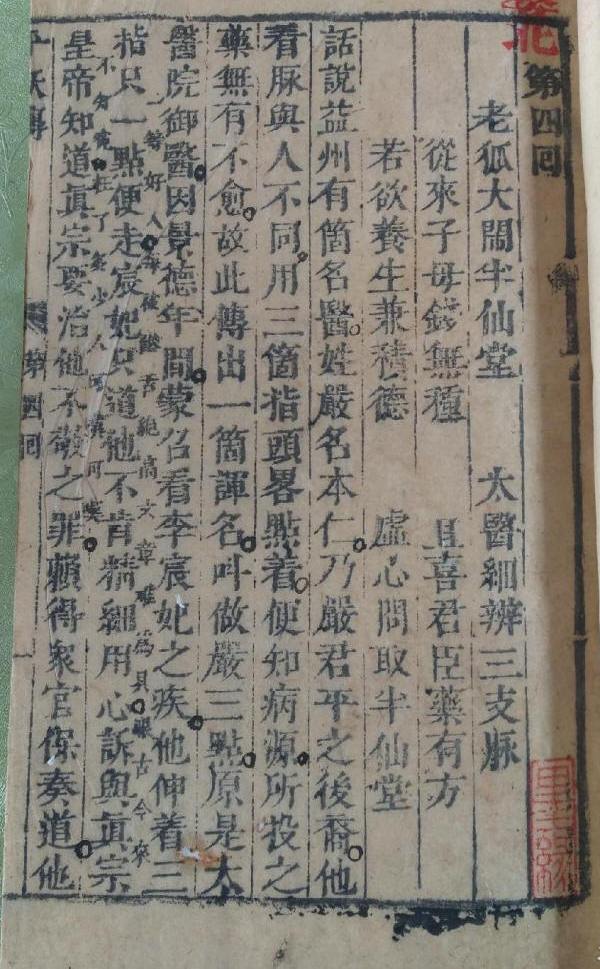 第四回
老狐大鬧半仙堂 太醫細辨三支脈
從來子母錢無種 且喜君臣藥有方
若欲養生兼積德 虛心問取半仙堂
話說益州有箇名醫姓嚴名本仁乃嚴君平之後裔他
看脈與人不同用三箇指頭畧點着便知病源所投之
藥無有不愈故此傳出一箇諢名叫做嚴三點原是太
醫院御醫因景德年間蒙召看李宸妃之疾他伸着三
一等好人每被
指只一點便走宸妃只道他不肯精細用心訴與眞宗
不知寃枉了多少人可嘆可笑
皇帝知道眞宗要治他不敬之罪賴得衆官保奏道他
平妖傳
第四回